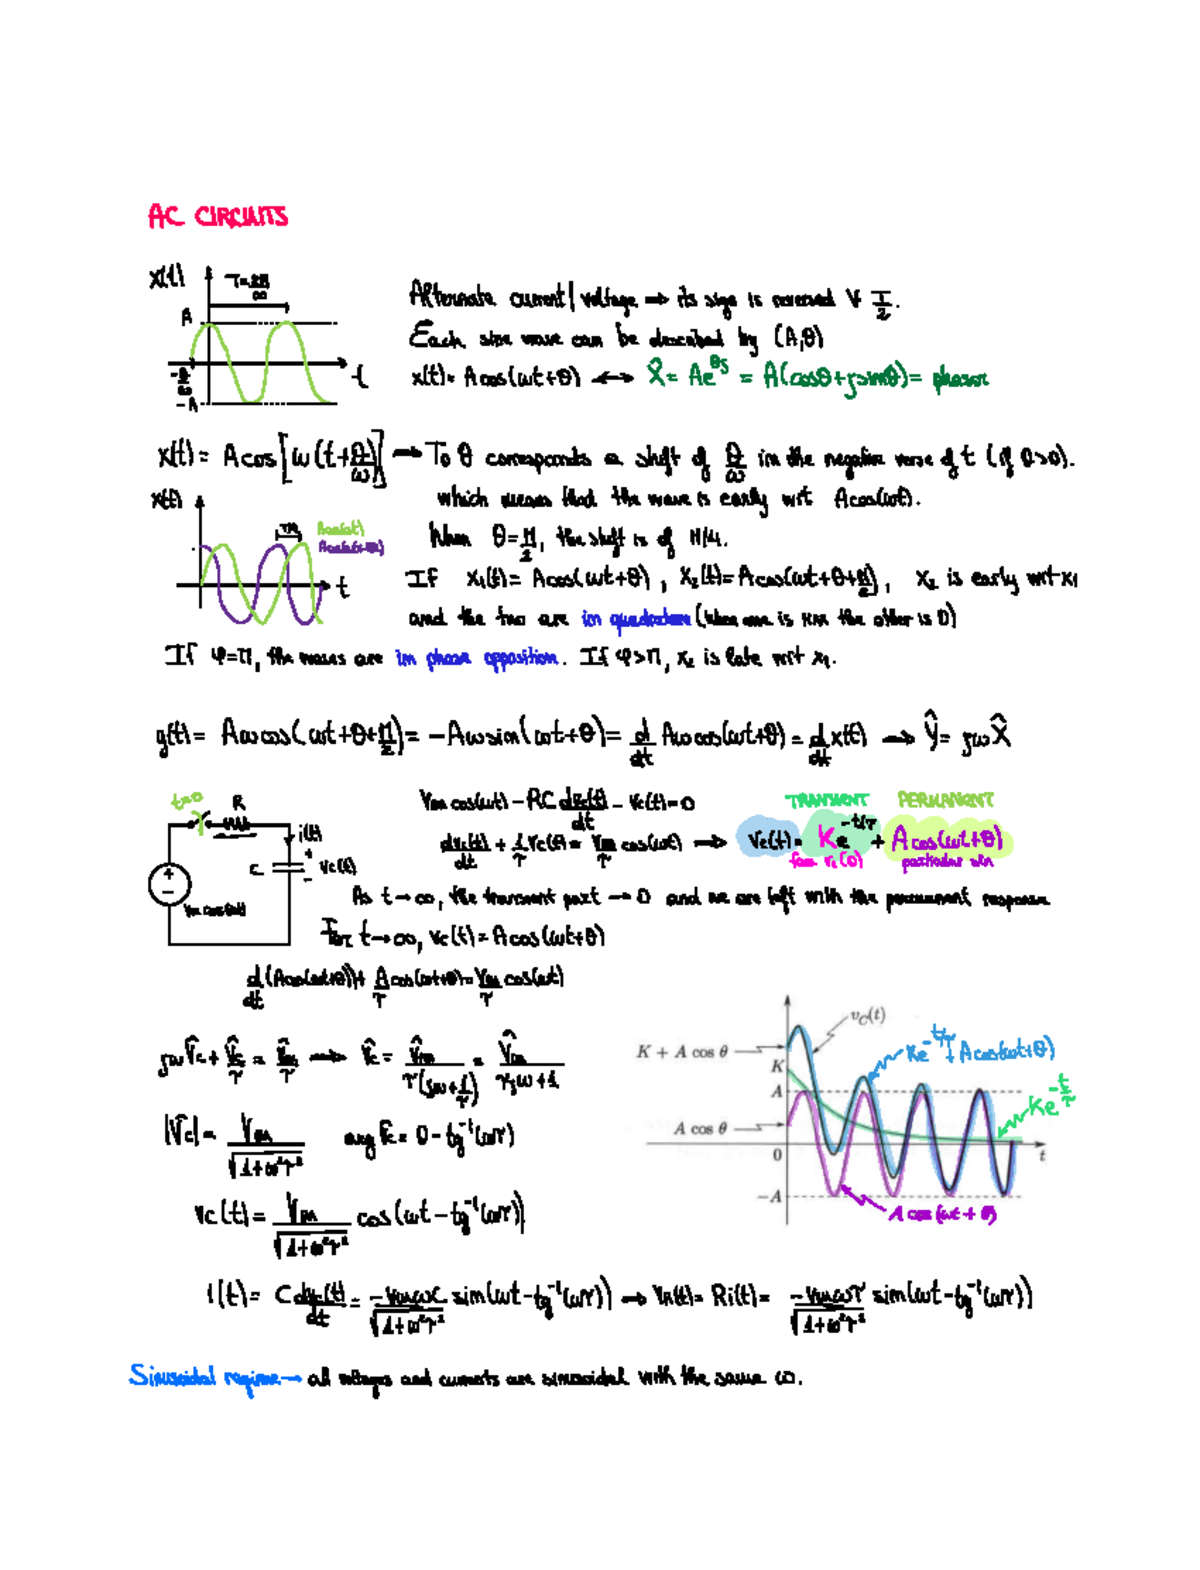 AC CIRCUITS
x(t)
T=2π/ω
A
-θ/ω
-A
t
Alternate current/voltage → its sign is reversed ∀ T/2.
Each sine wave can be described by (A,θ)
x(t)= Acos(ωt+θ) ↔ X̂= Ae^θj = A(cosθ+jsinθ)= phasor
x(t)= Acos[ω(t+θ/ω)] → To θ corresponds a shift of θ/ω in the negative verse of t (if θ>0).
which means that the wave is early wrt Acos(ωt).
x(t)
Acos(ωt)
t
When θ=π/2, the shift is of π/4.
If x₁(t)= Acos(ωt+θ), x₂(t)=Acos(ωt+θ+π/2), x₂ is early wrt x₁
and the two are in quadrature (when one is max the other is 0)
If φ=π, the waves are in phase opposition. If φ>π, x₂ is late wrt x₁.
y(t)= Aωcos(ωt+θ+π/2)= -Aωsin(ωt+θ)= d/dt Aωcos(ωt+θ) = d/dt x(t) → Ŷ= jωX̂
t=0
R
i(t)
C
+
vc(t)
-
+
-
Vm cos(ωt)
Vm cos(ωt) - RC dvc(t)/dt - vc(t)=0
TRANSIENT PERMANENT
dvc(t)/dt + 1/τ vc(t)= Vm/τ cos(ωt) → vc(t)= Ke^-t/τ + Acos(ωt+θ)
from vc(0) particular sln
As t→∞, the transient part →0 and we are left with the permanent response
For t→∞, vc(t)=Acos(ωt+θ)
d/dt(Acos(ωt+θ))+ A/τ cos(ωt+θ)= Vm/τ cos(ωt)
jωV̂c + V̂c/τ = V̂m/τ → V̂c = V̂m/τ(jω+1/τ) = V̂m/τjω+1
|V̂c| = Vm/√1+ω²τ² arg V̂c= 0 - tg⁻¹(ωτ)
vc(t)= Vm/√1+ω²τ² cos(ωt-tg⁻¹(ωτ))
v_C(t)
K + A cos θ
K
A
A cos θ
0
−A
t
Ke^-t/τ + Acos(ωt+θ)
Ke^-t/τ
A cos(ωt + θ)
i(t)= C dvc(t)/dt = -VmωC/√1+ω²τ² sin(ωt-tg⁻¹(ωτ)) → VR(t)= Ri(t)= -Vmωτ/√1+ω²τ² sin(ωt-tg⁻¹(ωτ))
Sinusoidal regime → all voltages and currents are sinusoidal with the same ω.